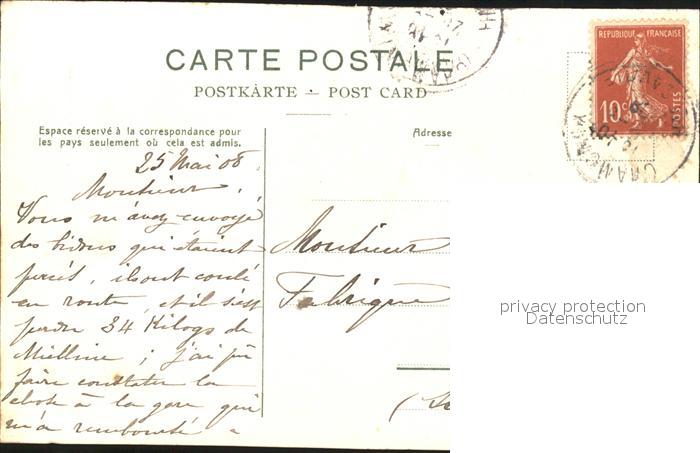 CARTE POSTALE
POSTKÅRTE — POST CARD
REPUBLIQUE FRANÇAISE
10c
POSTES
Espace réservé à la correspondance pour
les pays seulement où cela est admis.
Adresse
25 Mai 08
Monsieur,
Vous m'avez envoyé
des bidons qui étaient
percés, ils ont coulé
en route, et il s'est
perdu 34 Kilogs de
Mielline ; j'ai pu
faire constater la
chose à la gare qui
m'a remboursé
Monsieur
Fabrique
privacy protection
Datenschutz